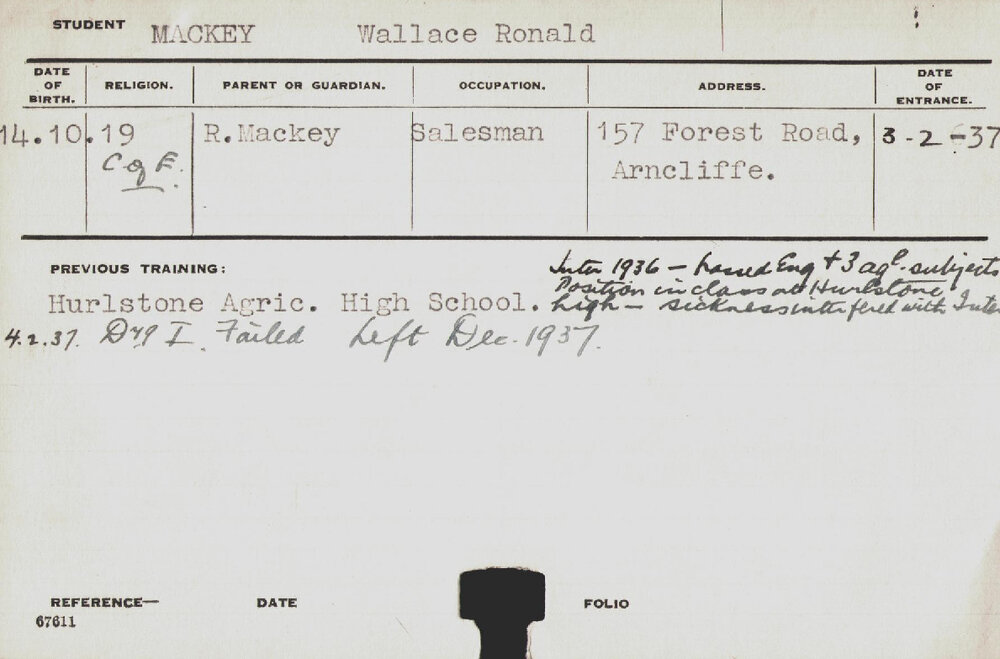 STUDENT MACKEY Wallace Ronald
DATE OF BIRTH. RELIGION. PARENT OR GUARDIAN. OCCUPATION. ADDRESS. DATE OF ENTRANCE.
14.10.19 R.Mackey Salesman 157 Forest Road, 3-2-37
C of E. Arncliffe.
Inter 1936 - passed Eng + 3 agl. subjects
PREVIOUS TRAINING: Position in class at Hurlstone
Hurlstone Agric. High School. high - sickness interfered with Inter
4.2.37. Dip I. Failed Left Dec. 1937.
REFERENCE— DATE FOLIO
67611